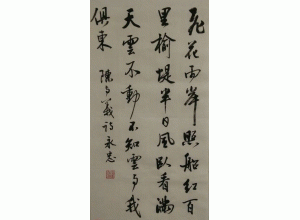 飛花兩岸照船紅百
里榆堤半日風臥看滿
天雲不動不知雲與我
俱東 陳與義詩永忠